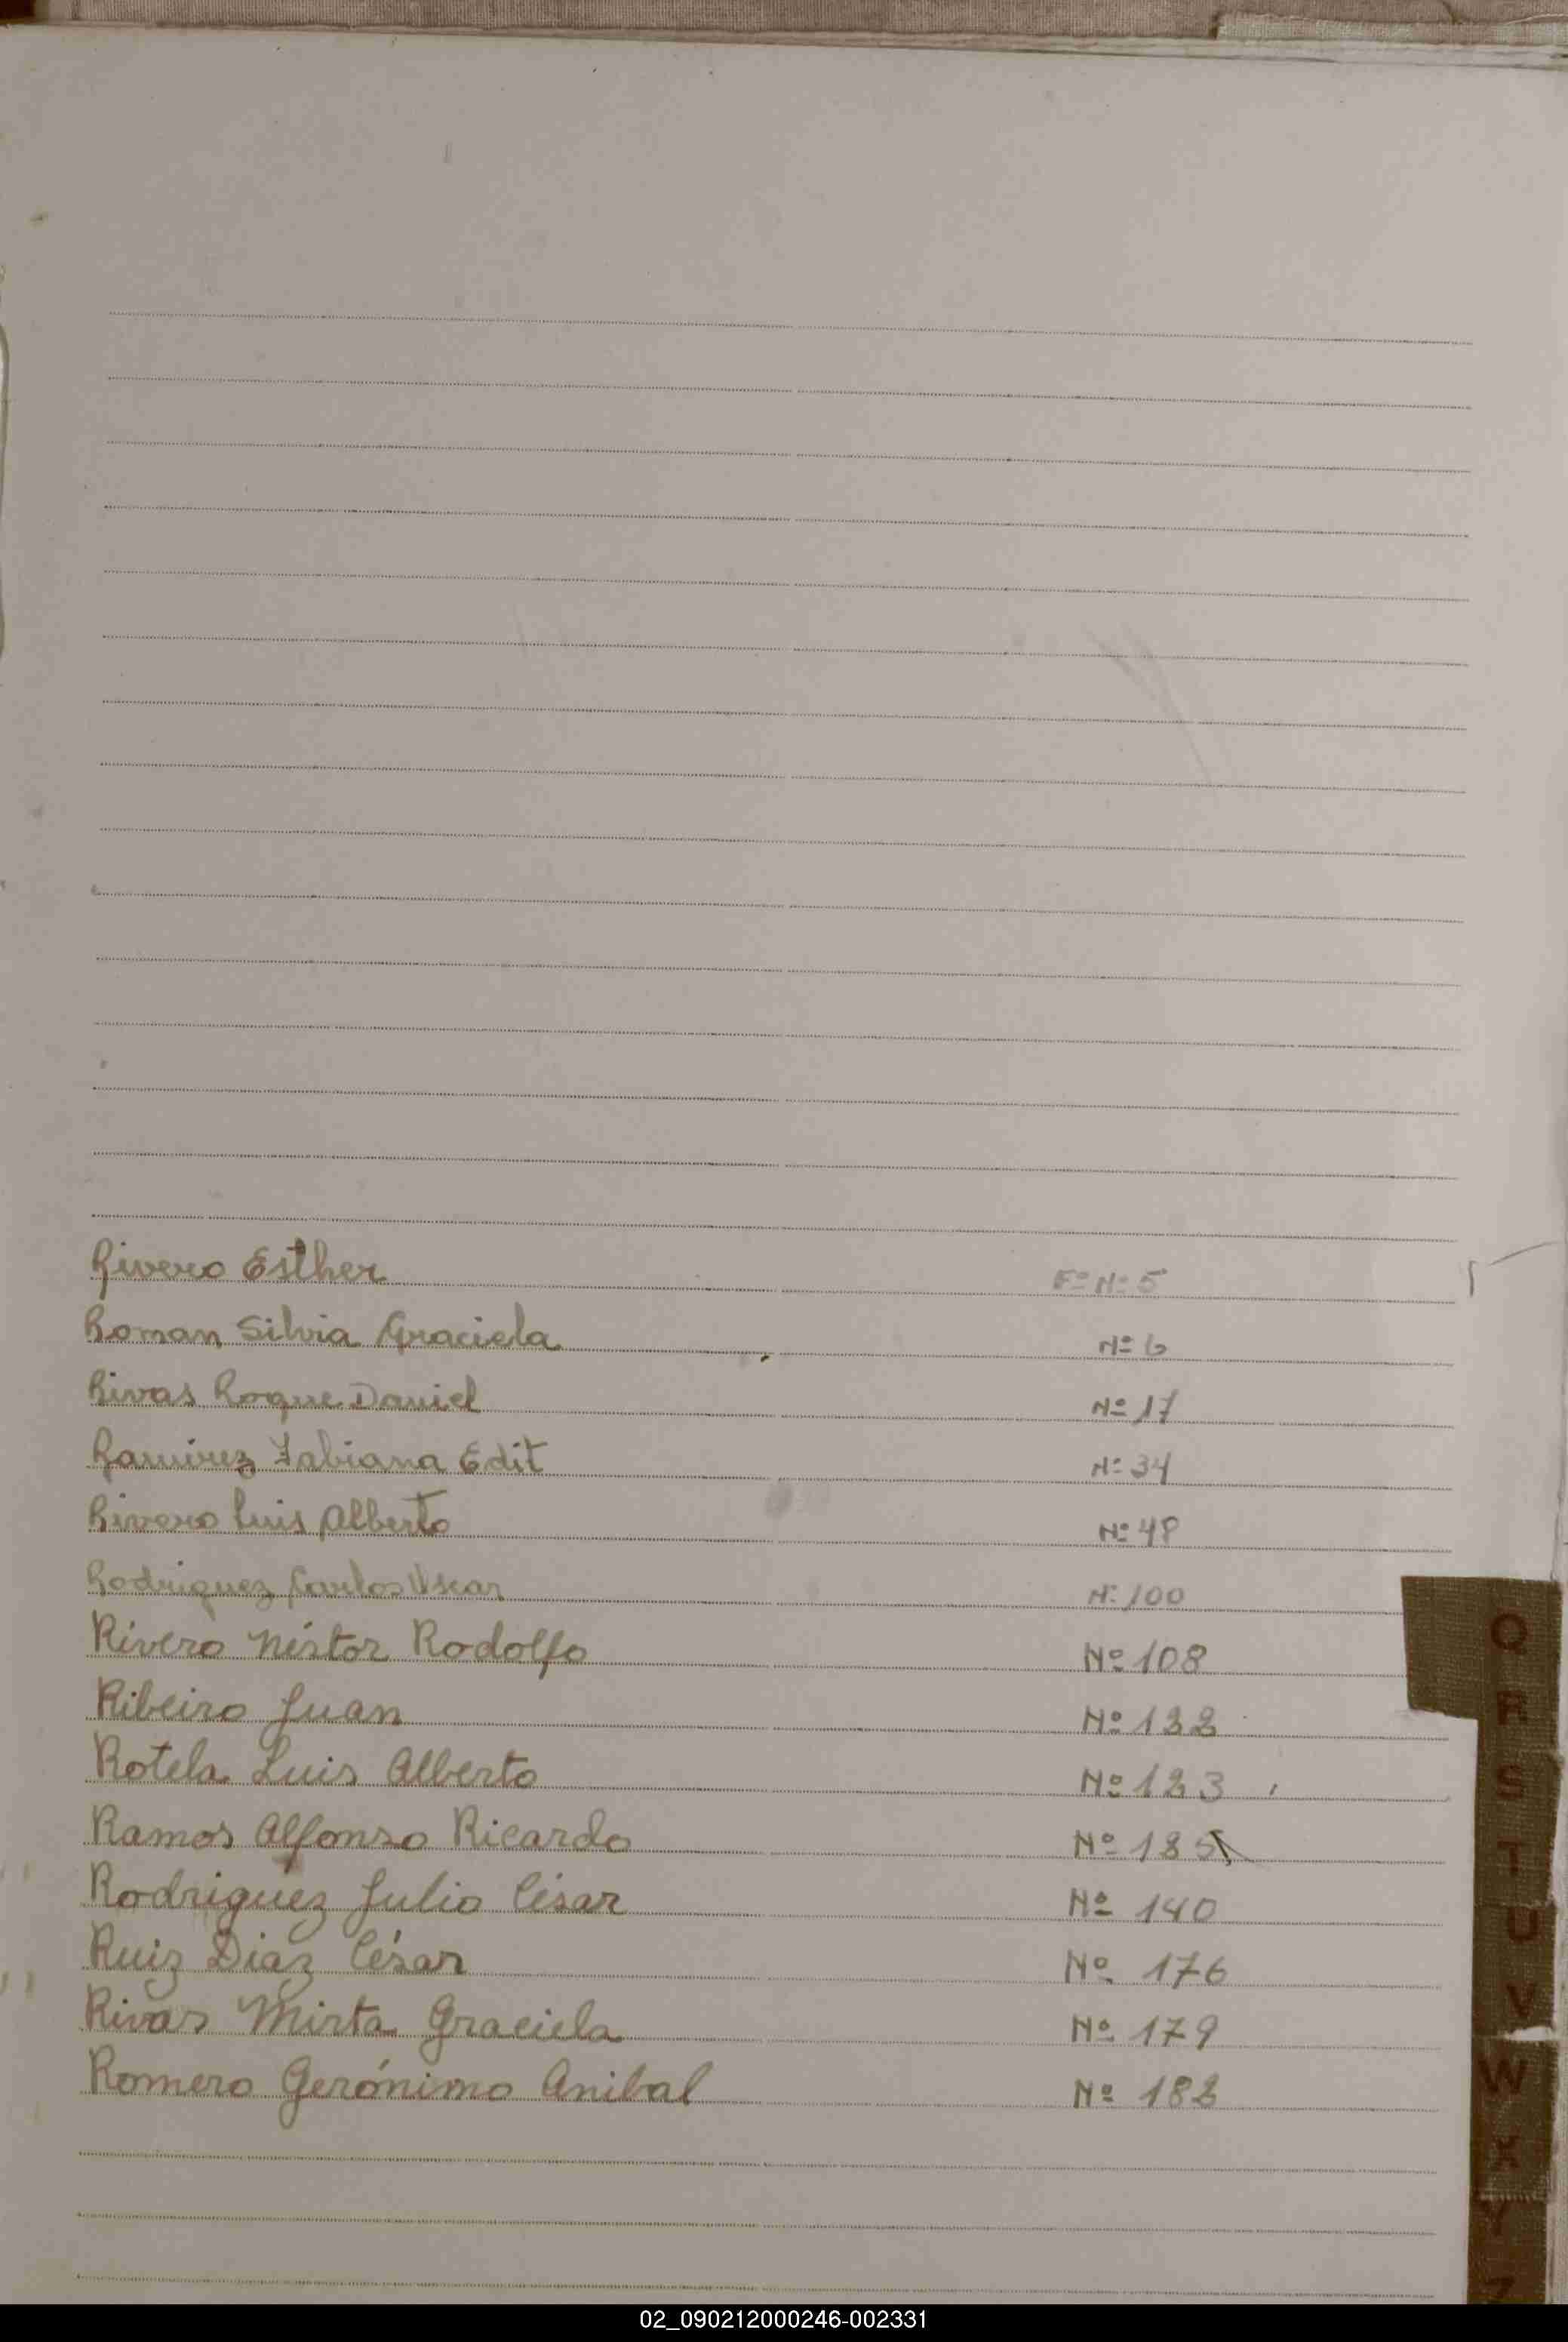 Rivero Esther Fº Nº 5
Roman Silvia Graciela Nº 6
Rivas Roque Daniel Nº 17
Ramirez Fabiana Edit Nº 34
Rivero Luis Alberto Nº 48
Rodriguez Carlos Oscar Nº 100
Rivero Néstor Rodolfo Nº 108
Ribeiro Juan Nº 122
Rotela Luis Alberto Nº 123
Ramos Alfonso Ricardo Nº 125
Rodriguez Julio César Nº 140
Ruiz Diaz César Nº 176
Rivas Mirta Graciela Nº 179
Romero Gerónimo Anibal Nº 182
Q
R
S
T
U
V
W
X
Y
Z
02_090212000246-002331